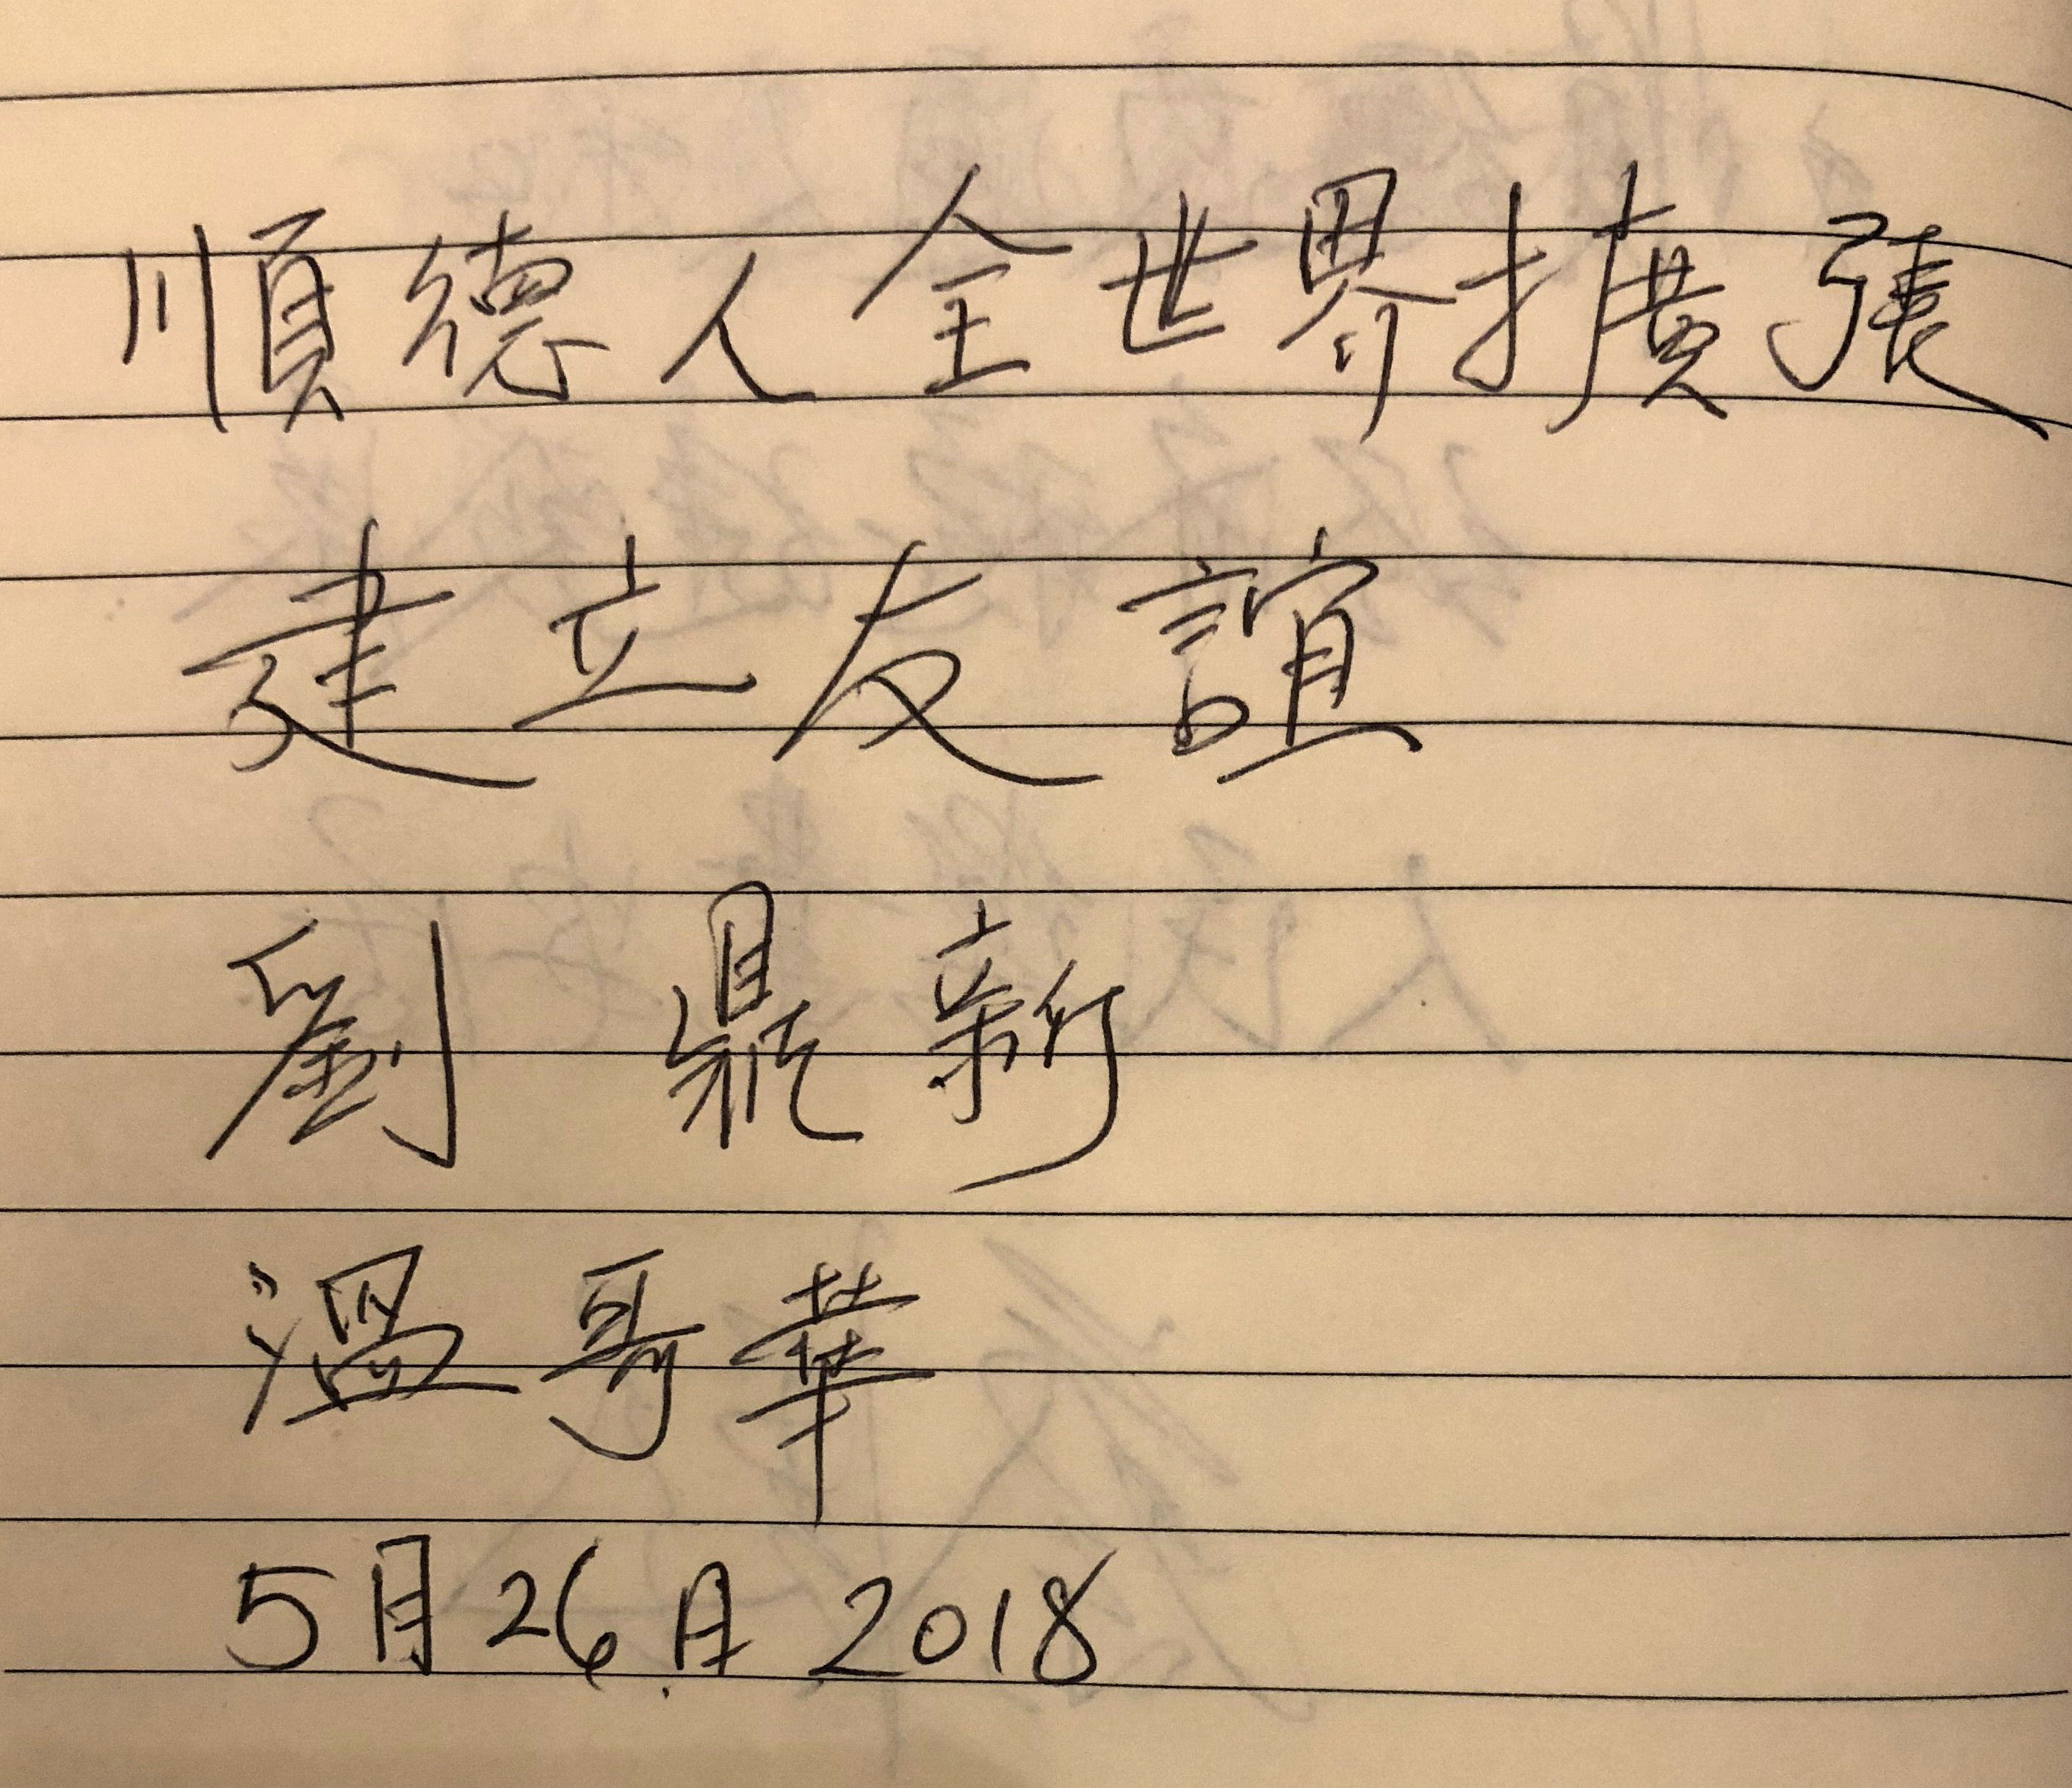 順德人全世界擴張
建立友誼
劉 鼎新
溫哥華
5月26日 2018